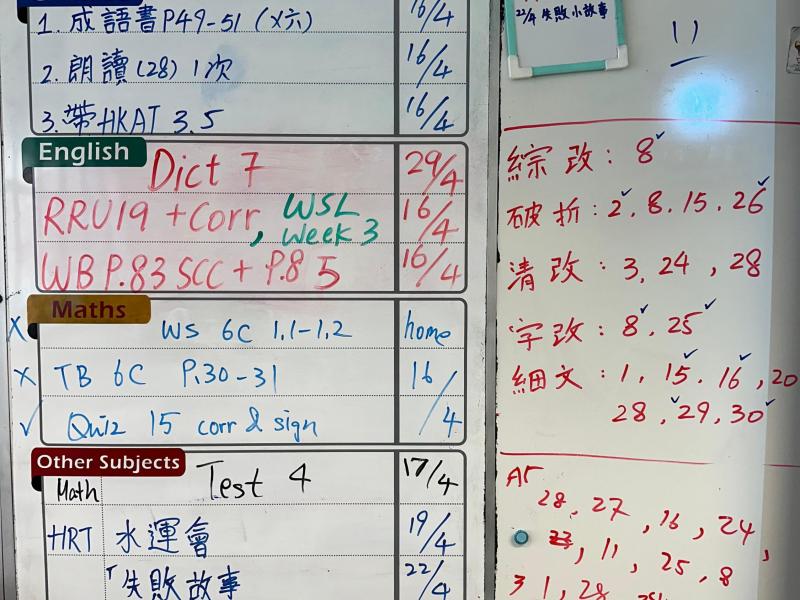 1. 成語書P49-51 (X六) 16/4
2. 朗讀(28) 1次 16/4
3. 帶HKAT 3.5 16/4
English
Dict 7 29/4
RRU19 + Corr, WSL Week 3 16/4
WB P.83 SCC + P.85 16/4
Maths
X WS 6C 1.1-1.2 home
X TB 6C P.30-31 16/4
✓ Quiz 15 corr & sign
Other Subjects
Math Test 4 17/4
HRT 水運會 19/4
「失敗故事 22/4
22/4 失敗小故事
11
綜改: 8✓
破折: 2✓, 8, 15, 26✓
清改: 3, 24, 28
字改: 8✓, 25✓
細文: 1, 15✓, 16✓, 20
28, ✓29, 30✓
AR
28, 27, 16, 24,
11, 25, 8
31, 28,